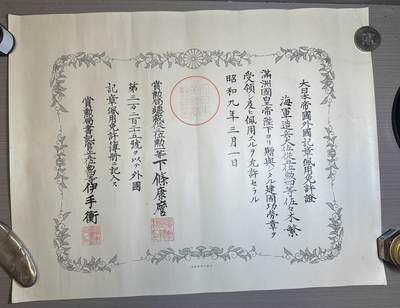 大日本帝國外國記章佩用免許證
海軍造兵大佐從五位勳四等佐々木繁
滿洲國皇帝陛下ヨリ贈與シタル建國功勞章ヲ
受領シ及ヒ佩用スルヲ允許セラル
昭和九年三月一日
賞勳局總裁從三位勳二等下條康麿
第三万二百三十五號ヲ以テ外國
記章佩用免許簿冊ニ記入ス
賞勳局書記官